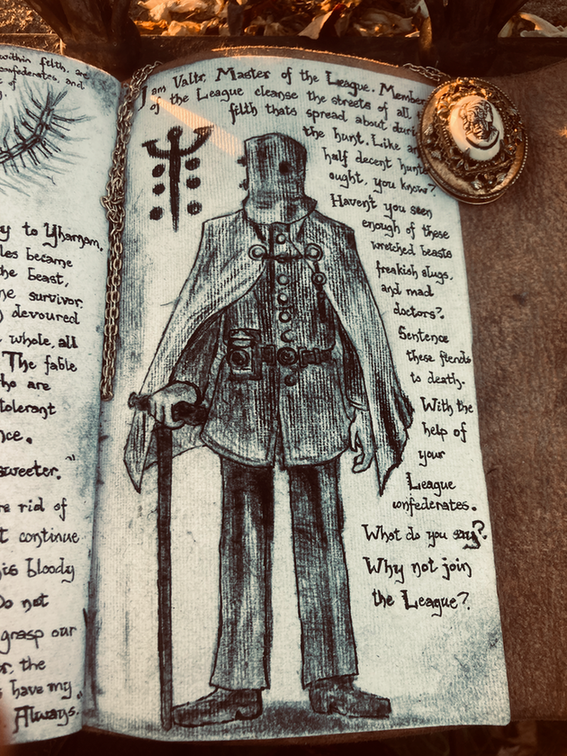 within felth, are
confederates, and
of
y to Yharnam,
les became
the beast,
ne survivor
y devoured
whole, all
The fable
ho are
tolerant
nce.
sweeter."
re rid of
t continue
his bloody
Do not
grasp our
or. the
s have my
Always.
I am Valtr, Master of the League. Member
of the League cleanse the streets of all
filth thats spread about duri
the hunt. Like an
half decent hunte
ought, you know?
Haven't you seen
enough of these
wretched beasts
freakish slugs,
and mad
doctors?.
Sentence
these fiends
to death.
With the
help of
your
League
confederates.
What do you say?
Why not join
the League?.